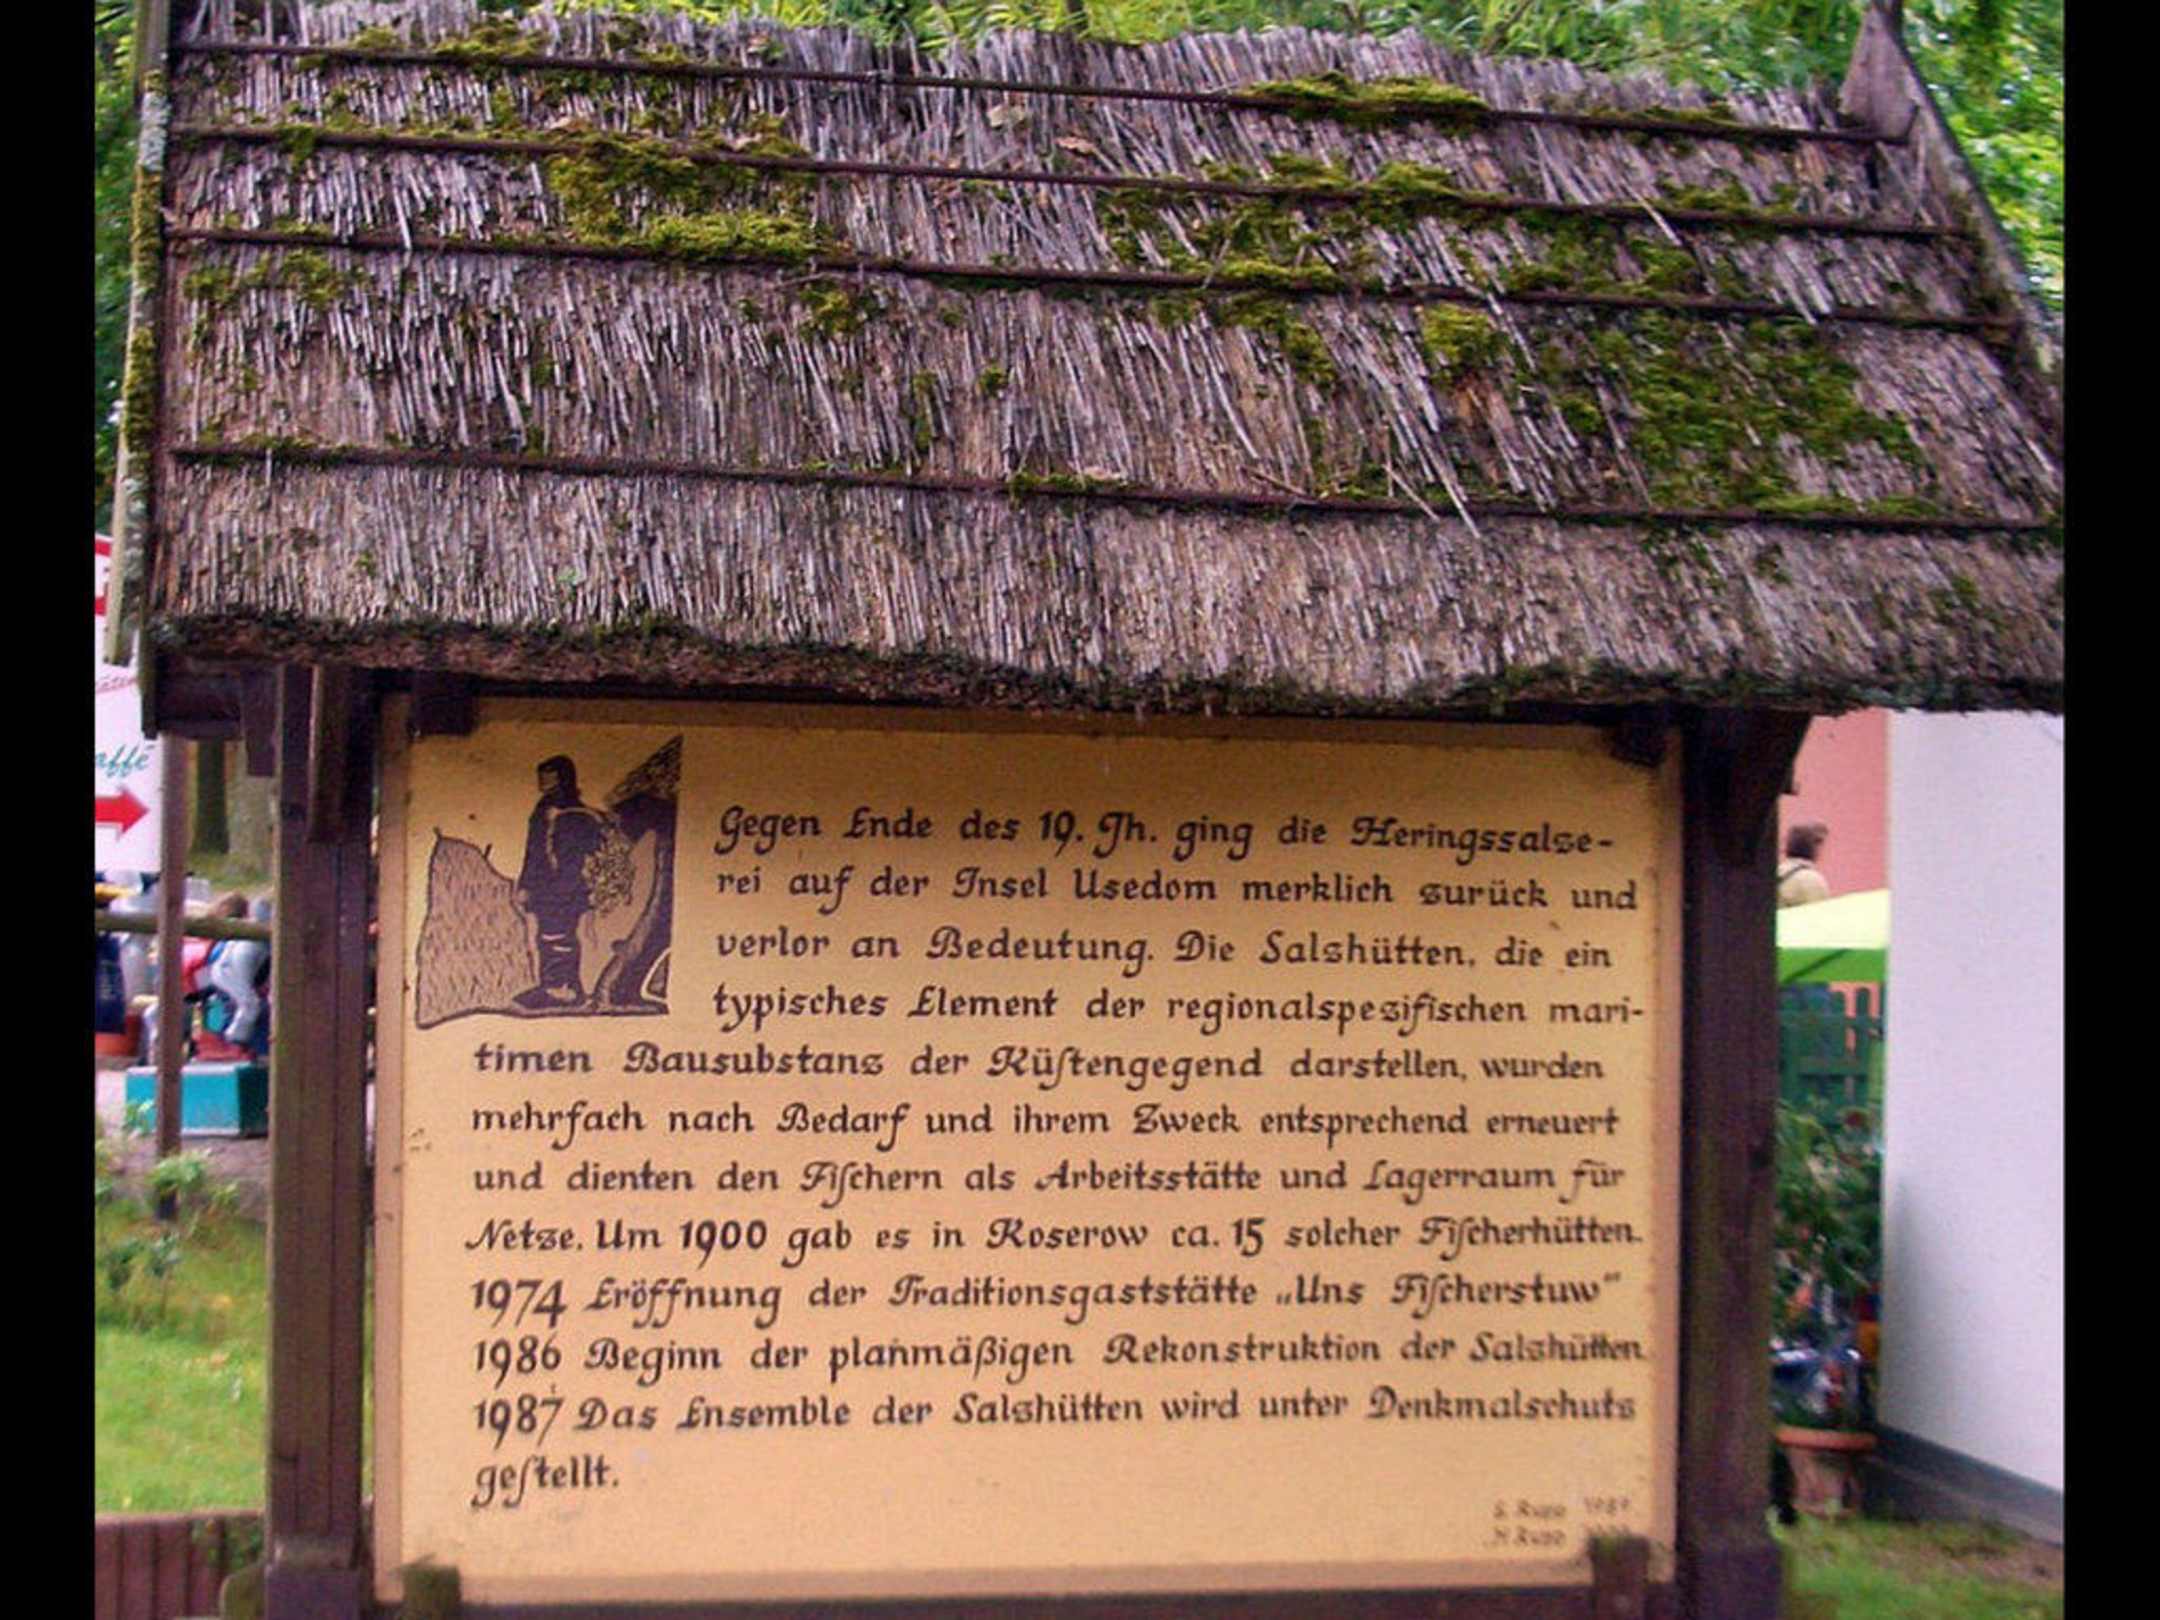 affé
Gegen Ende des 19. Jh. ging die Heringssalze-
rei auf der Insel Usedom merklich zurück und
verlor an Bedeutung. Die Salzhütten, die ein
typisches Element der regionalspezifischen mari-
timen Bausubstanz der Küſtengegend darstellen, wurden
mehrfach nach Bedarf und ihrem Zweck entsprechend erneuert
und dienten den Fiſchern als Arbeitsstätte und Lagerraum für
Netze. Um 1900 gab es in Koserow ca. 15 solcher Fiſcherhütten.
1974 Eröffnung der Traditionsgaststätte „Uns Fiſcherstuw"
1986 Beginn der planmäßigen Rekonstruktion der Salzhütten
1987 Das Ensemble der Salzhütten wird unter Denkmalschutz
geſtellt.